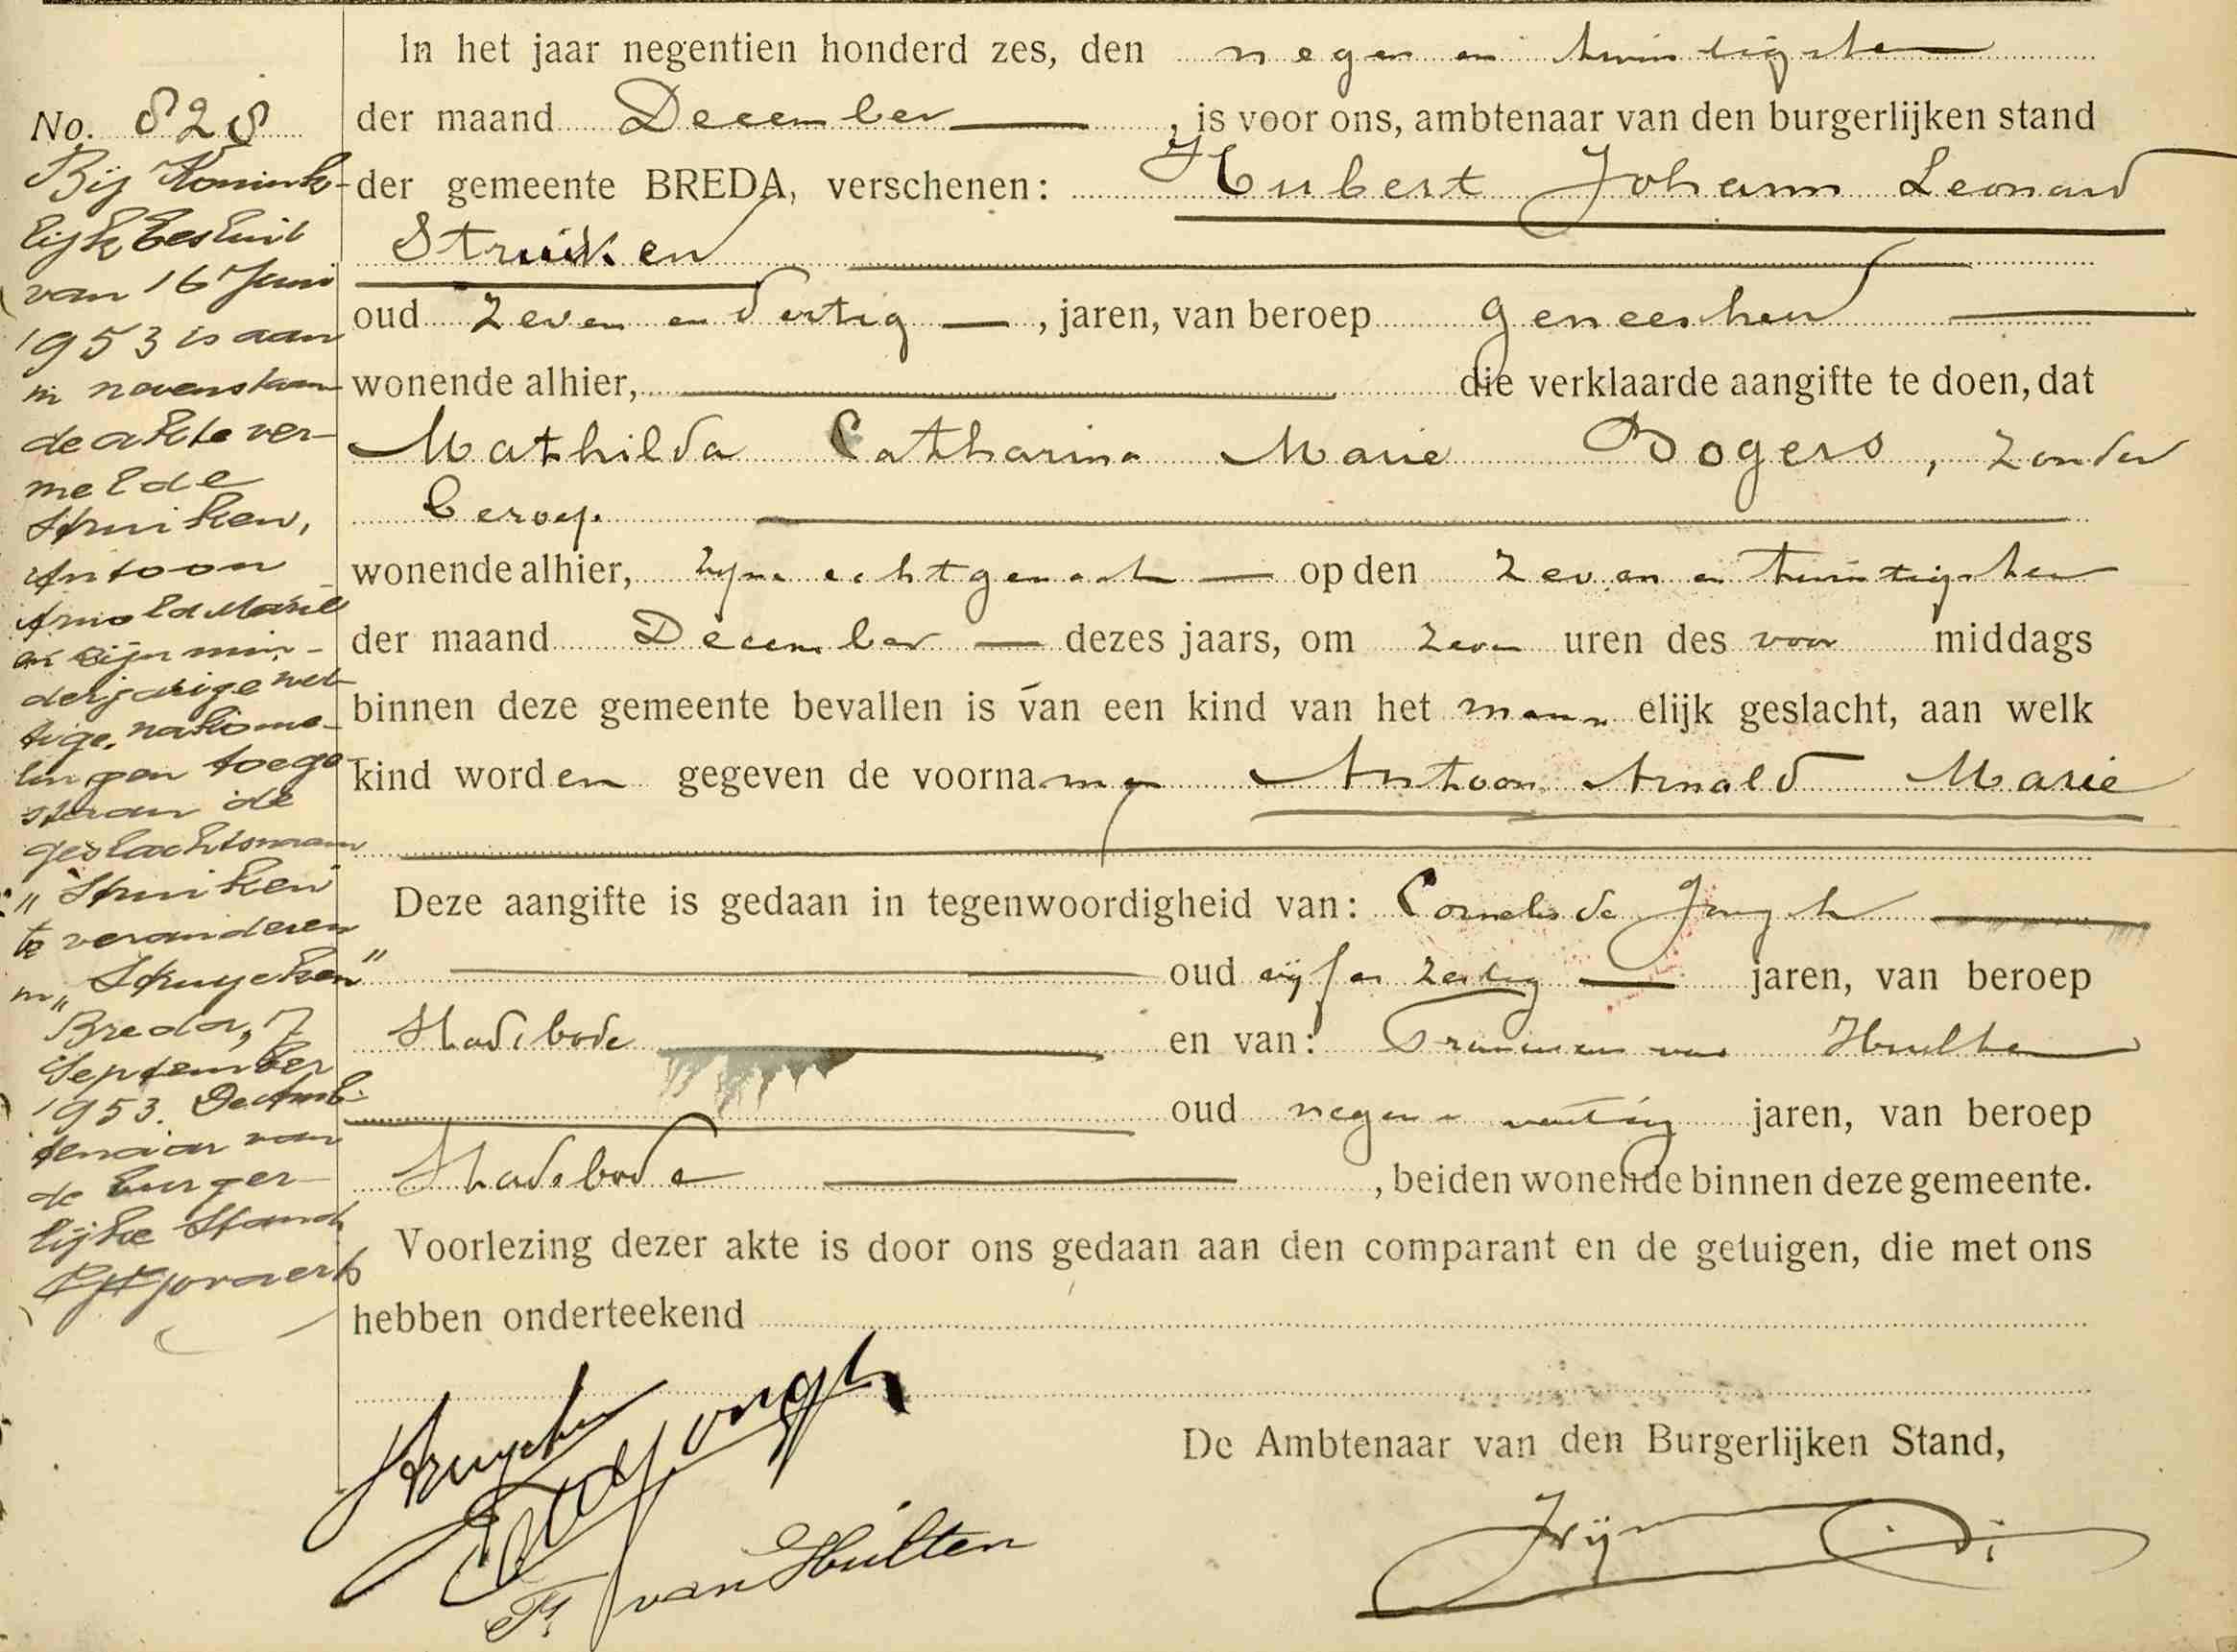 In het jaar negentien honderd zes, den negen en twintigsten
der maand December, is voor ons, ambtenaar van den burgerlijken stand
der gemeente BREDA, verschenen: Hubert Johann Leonard
Struiken
oud zeven en dertig, jaren, van beroep geneesheer
wonende alhier, die verklaarde aangifte te doen, dat
Mathilda Catharina Marie Bogers, zonder
beroep
wonende alhier, zijne echtgenoote op den zeven en twintigsten
der maand December dezes jaars, om zeven uren des voor middags
binnen deze gemeente bevallen is van een kind van het mannelijk geslacht, aan welk
kind worden gegeven de voornamen Antoon Arnold Marie
Deze aangifte is gedaan in tegenwoordigheid van: Cornelis de Jongh
oud vijf en zestig jaren, van beroep
Stadsbode en van: Franciscus van Hulten
oud negen en veertig jaren, van beroep
Stadsbode, beiden wonende binnen deze gemeente.
Voorlezing dezer akte is door ons gedaan aan den comparant en de getuigen, die met ons
hebben onderteekend
Struycken
C de Jongh
F. van Hulten
De Ambtenaar van den Burgerlijken Stand,
No. 828
Bij Konink-
lijk besluit
van 16 Juni
1953 is aan
in nevenstaan
de akte ver-
melde
Struiken,
Antoon
Arnold Marie
en zijn min-
derjarige wet-
tige nakome-
lingen toege-
staan de
geslachtsnaam
"Struiken"
te veranderen
in "Struycken"
Breda, 7
September
1953. De Amb-
tenaar van
de burger-
lijke Stand